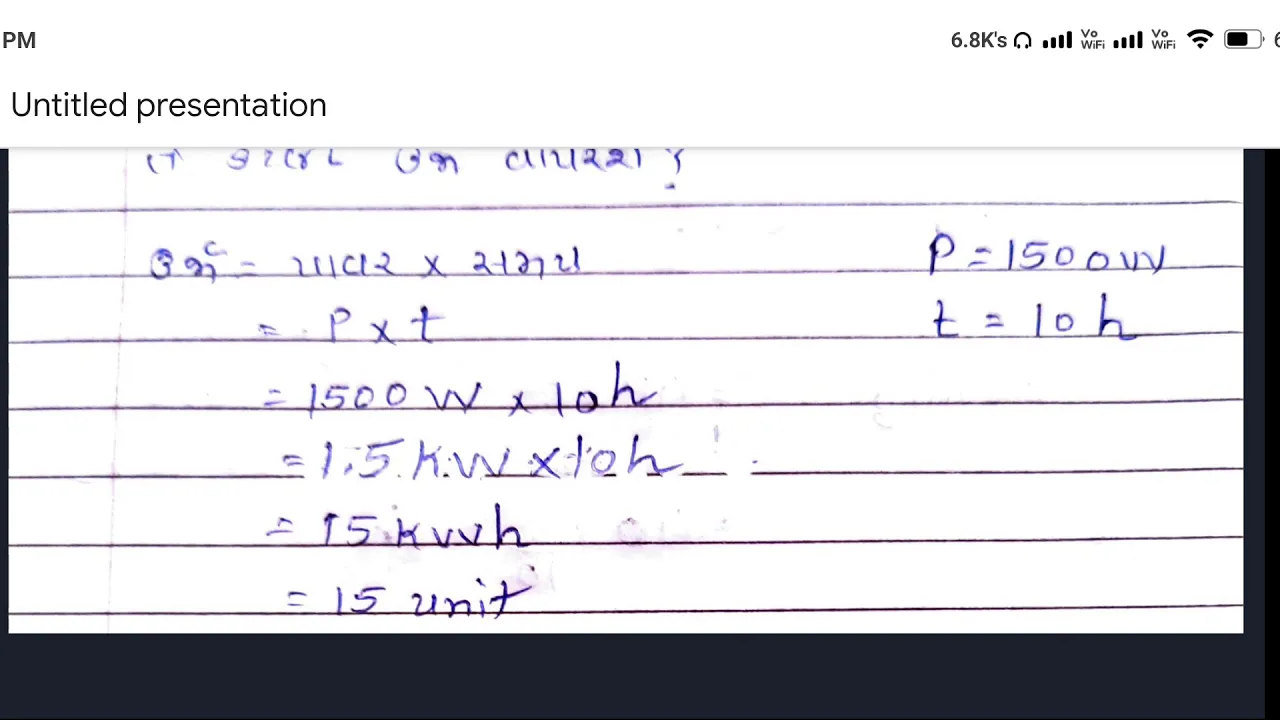 PM 6.8K's Vo WiFi Vo WiFi 6
Untitled presentation
ઉર્જા = પાવર × સમય P = 1500W
= P × t t = 10 h
= 1500 W × 10h
= 1.5 KW × 10h
= 15 KWh
= 15 unit